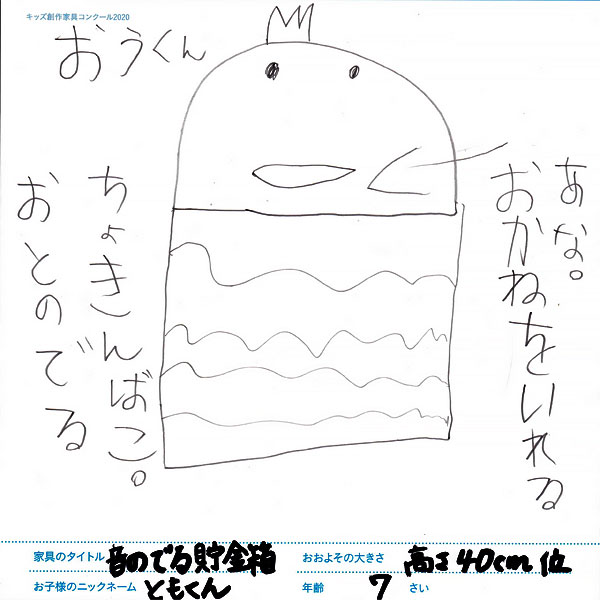 キッズ創作家具コンクール2020
おうくん
あな。
おかねをいれる
ちょきんばこ。
おとのでる
家具のタイトル 音のでる貯金箱
おおよその大きさ 高さ40cm位
お子様のニックネーム ともくん
年齢 7 さい